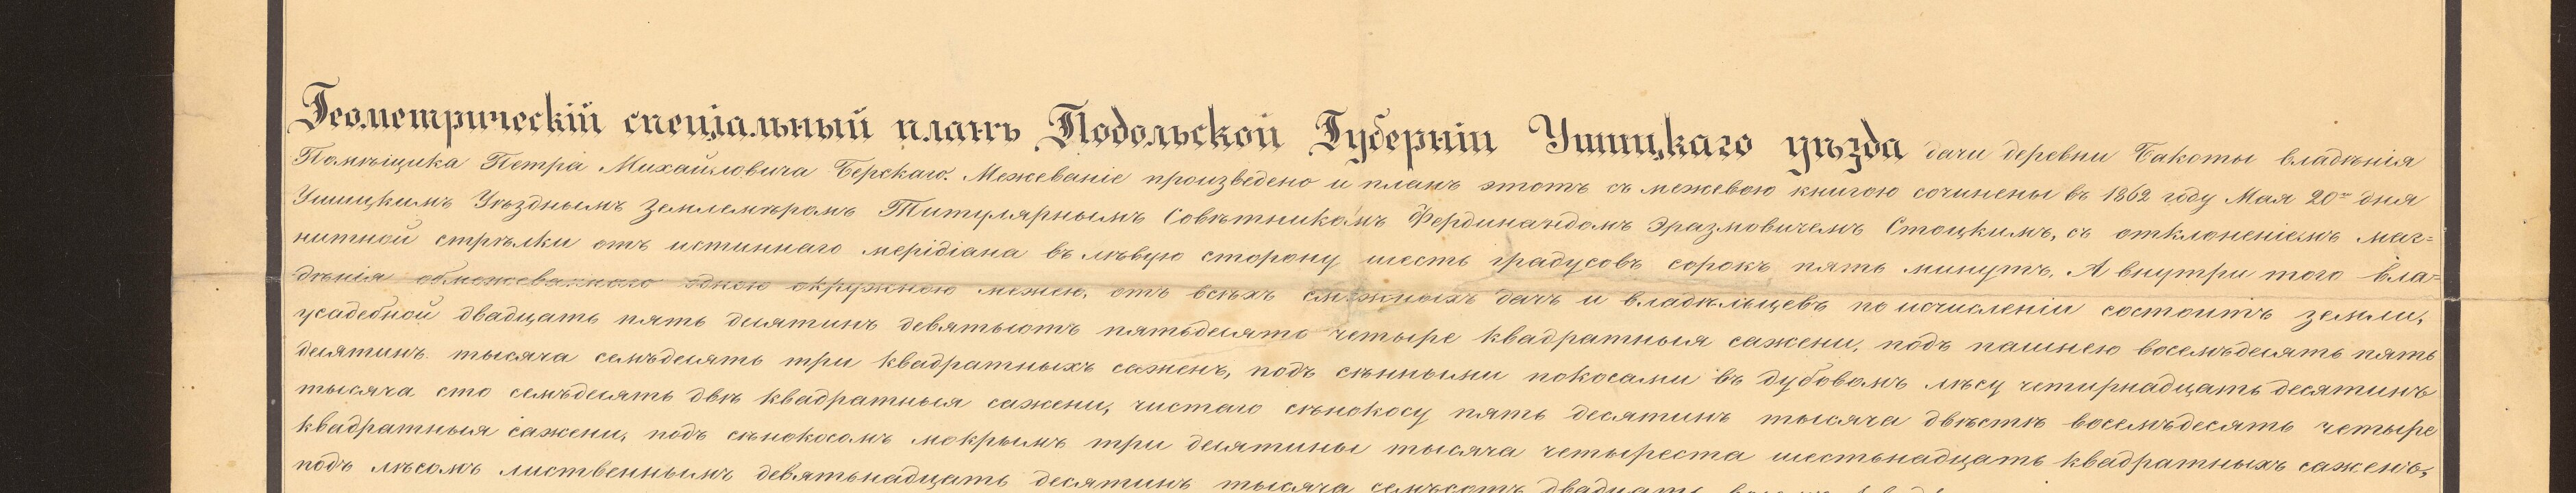 Геометрическій спеціальный планъ Подольской Губерніи Ушицкаго уѣзда дачи деревни Бакоты владѣнія
Помѣщика Петра Михайловича Берскаго. Межеваніе произведено и планъ этотъ съ межевою книгою сочинены въ 1862 году Мая 20го дня
Ушицкимъ Уѣзднымъ Землемѣромъ Титулярнымъ Совѣтникомъ Фердинандомъ Эразмовичемъ Стоцкимъ, съ отклоненіемъ маг=
нитной стрѣлки отъ истиннаго мерідіана въ лѣвую сторону шесть градусовъ сорокъ пять минутъ. А внутри того вла=
дѣнія обмежеваннаго одною окружною межею, отъ всѣхъ смѣжныхъ дачъ и владѣльцевъ по исчисленіи состоитъ земли,
усадебной двадцать пять десятинъ девятьсотъ пятьдесятъ четыре квадратныя сажени, подъ пашнею восемьдесятъ пять
десятинъ тысяча семьдесятъ три квадратныхъ саженъ, подъ сѣнными покосами въ дубовомъ лѣсу четырнадцать десятинъ
тысяча сто семьдесятъ двѣ квадратныя сажени, чистаго сѣнокосу пять десятинъ тысяча двѣстѣ восемьдесятъ четыре
квадратныя сажени, подъ сѣнокосомъ мокрымъ три десятины тысяча четыреста шестьнадцать квадратныхъ саженъ,
подъ лѣсомъ лиственнымъ девятьнадцать десятинъ тысяча семьсотъ двадцать